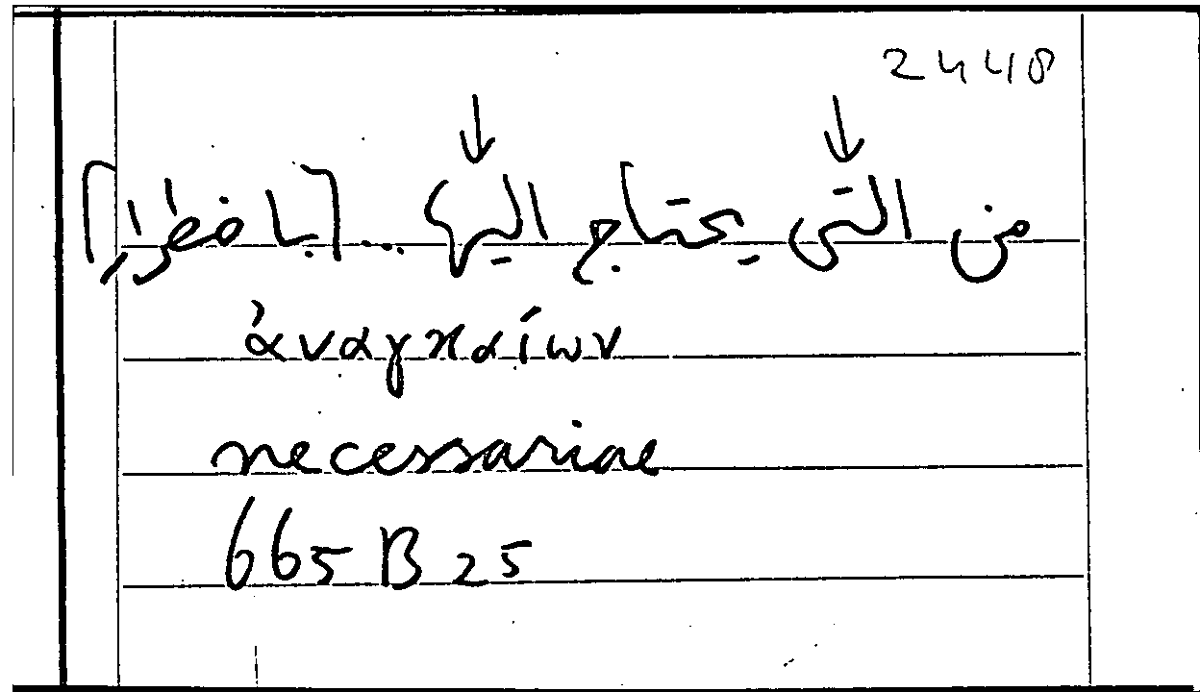 2448
↓ ↓
من التى يحتاج اليها ... [باضطرار]
ἀναγκαίων
necessariae
665 B 25